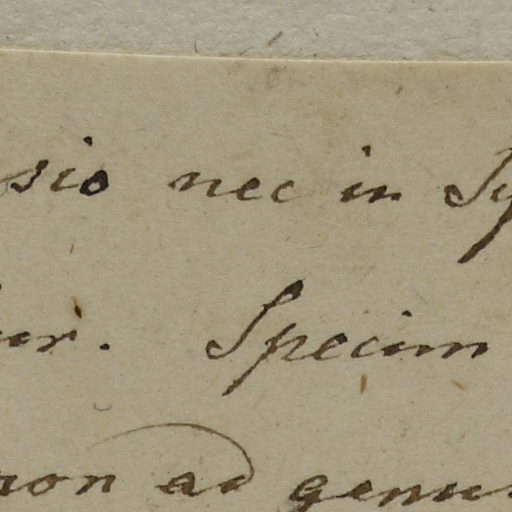 sio nec in Sy
ur. Specim
non ad genus